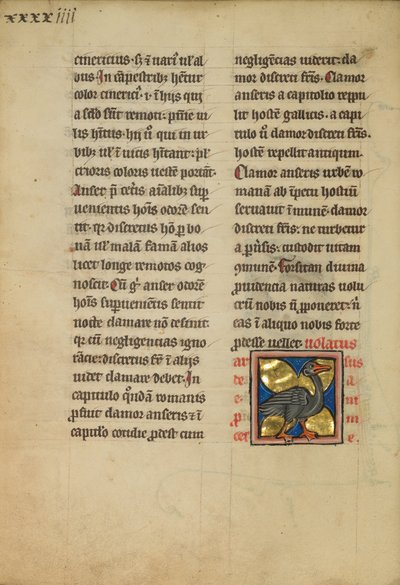 xxxxiiii
cinericius. sꝫ ⁊ uari⁹ ul̓ al
bus. In cāpestribꝫ
color cineric⁹. ⁊ ī hijs qui
a sc̄lo sūt remoti.
in ur
bibꝫ ul̓ ī uicis hītant:
coloris uestē portāt.
Anser p̄ cet̓is aīalibꝫ suꝑ
uenientis hoīs odorē sen
tit. qꝛ discretus hō ꝓ bo
nā ul̓ malā famā alios
licet longe remotos cog
noscit. Cū ḡ anser odorē
hoīs suꝑuenientis sentit
nocte clamare nō desinit.
qꝛ cū negligencias igno
rācie discretus fr̄ ī alijs
uidet clamare debet. In
capitulo qn̄dam romanis
ꝓfuit clamor anseris ⁊ ī
capitl̓o cotidie ꝓdest cum
negligēcias uiderit: cla
mor discreti fr̄is. Clamor
anseris a capitolio reppu
lit hostē gallicus. a capi
tulo ū clamor discreti fr̄is.
hostē repellit antiquum.
Clamor anseris urbem ro
manā ab īpetu hostiū
seruauit. ī mūnē. clamor
discreti fr̄is: ne turbetur
a ꝑuīsis: custodit uitam
9munē. Forsitan diuina
prudencia naturas uolu
crū nobis ū ꝓponeret: n̄
eas ī aliquo nobis forte
prodesse uellet. uolatus